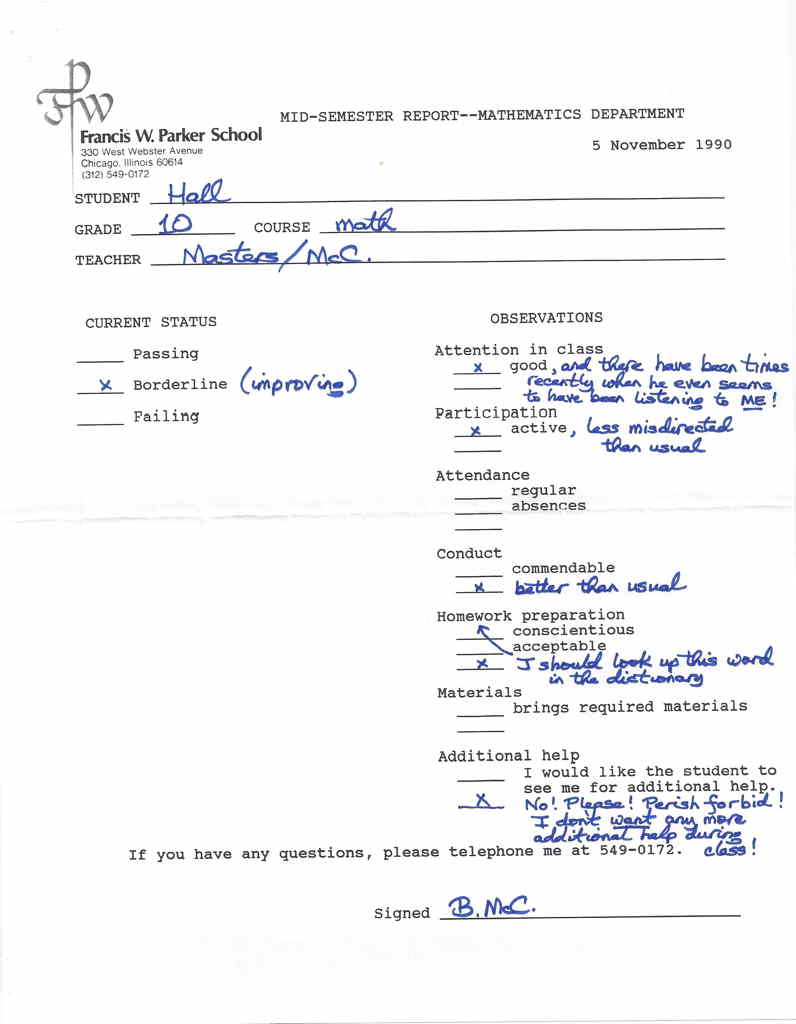 PW
Francis W. Parker School
330 West Webster Avenue
Chicago, Illinois 60614
(312) 549-0172
MID-SEMESTER REPORT--MATHEMATICS DEPARTMENT
5 November 1990
STUDENT Hall
GRADE 10 COURSE math
TEACHER Masters/McC.
CURRENT STATUS
Passing
x Borderline (improving)
Failing
OBSERVATIONS
Attention in class
x good, and there have been times
recently when he even seems
to have been listening to ME!
Participation
x active, less misdirected
than usual
Attendance
regular
absences
Conduct
commendable
x better than usual
Homework preparation
conscientious
acceptable
x I should look up this word
in the dictionary
Materials
brings required materials
Additional help
I would like the student to
see me for additional help.
x No! Please! Perish forbid!
I don't want any more
additional help during
class!
If you have any questions, please telephone me at 549-0172.
Signed B. McC.